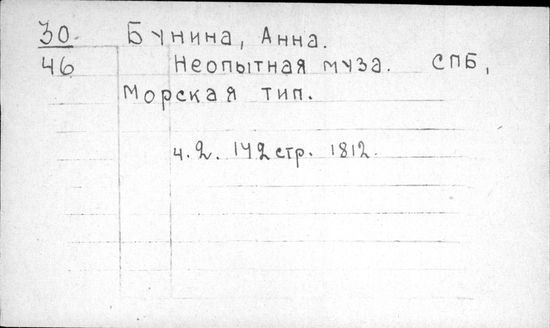 30 Бунина, Анна.
46 Неопытная муза. СПБ,
Морская тип.
ч. 2. 142 стр. 1812.